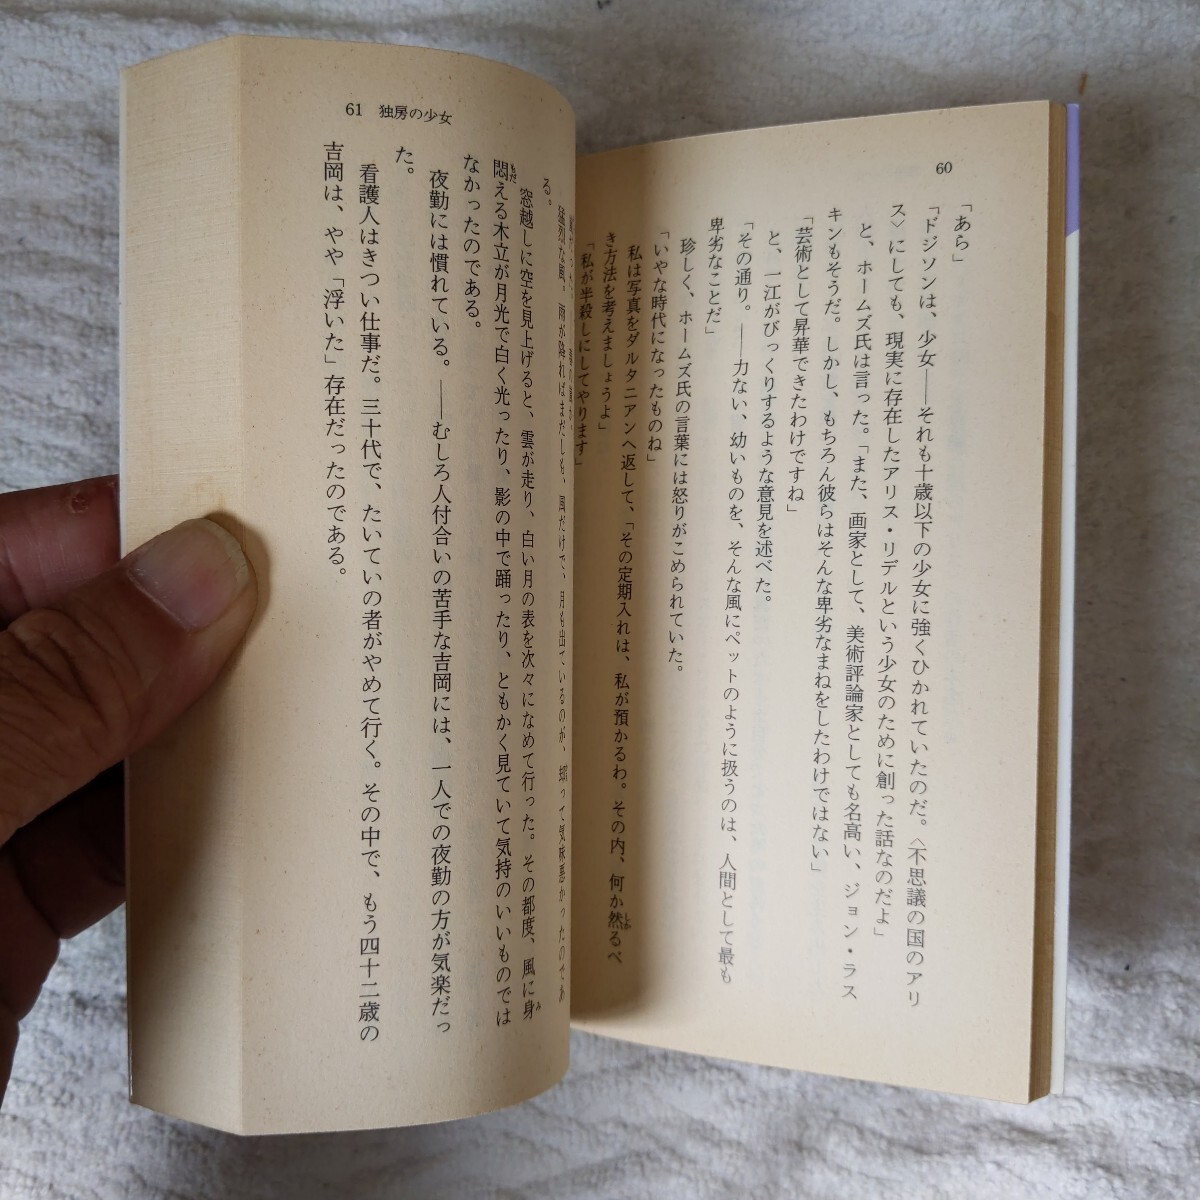 60
「あら」
「ドジソンは、少女――それも十歳以下の少女に強くひかれていたのだ。〈不思議の国のアリ
ス〉にしても、現実に存在したアリス・リデルという少女のために創った話なのだよ」
と、ホームズ氏は言った。「また、画家として、美術評論家としても名高い、ジョン・ラス
キンもそうだ。しかし、もちろん彼らはそんな卑劣なまねをしたわけではない」
「芸術として昇華できたわけですね」
と、一江がびっくりするような意見を述べた。
「その通り。――力ない、幼いものを、そんな風にペットのように扱うのは、人間として最も
卑劣なことだ」
珍しく、ホームズ氏の言葉には怒りがこめられていた。
「いやな時代になったものね」
私は写真をダルタニアンへ返して、「その定期入れは、私が預かるわ。その内、何か然るべ
き方法を考えましょうよ」
「私が半殺しにしてやります」
61 独房の少女
猛烈な風。雨が降ればまだしも、風だけで、月も出ているのが、却って気味悪かったのであ
る。
窓越しに空を見上げると、雲が走り、白い月の表を次々になめて行った。その都度、風に身
悶える木立が月光で白く光ったり、影の中で踊ったり、ともかく見ていて気持のいいものでは
なかったのである。
夜勤には慣れている。――むしろ人付合いの苦手な吉岡には、一人での夜勤の方が気楽だっ
た。
看護人はきつい仕事だ。三十代で、たいていの者がやめて行く。その中で、もう四十二歳の
吉岡は、やや「浮いた」存在だったのである。